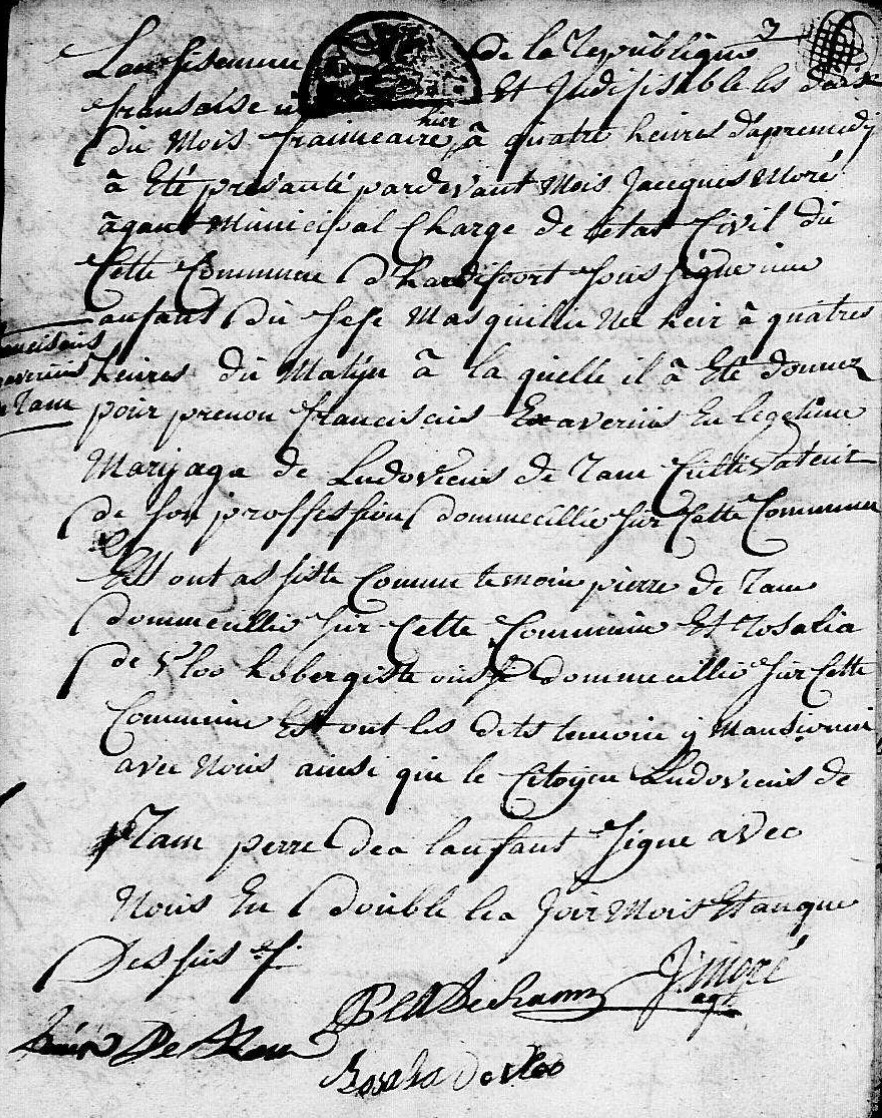 Lan sisemme de la Republique
fransaise u Et Indifisible les douse
du Mois frimeaire hier à quatre heures d'apremedij
à Eté presanté pardevant Mois Jacques Moré
àgant Municipal Charge de létat Civil du
Cette Commune d'hardifoort sous signe une
anfant du sese Masquillie Né heir à quatres
heures du Matijn à la quelle il à Eté donnez
pour prenon franciscus Exaverius En legetime
Marijaga de Ludovicus de Ram Cultivateur
de son proffession dommecillie sur Cette Commune
Est ont assiste Comme temoin pierre de Ram
dommecillie sur Cette Commune Et Rosalia
de Vloo hobergiste dommecillie sur Cette
Commune Est ont les dits temoin
avec Nous ainsi que le Citoyen Ludovicus de
Ram perre de lanfant signe avec
Nous En double les Jour Mois Et anque
Dessus
franciscus
xaverius
de Ram
J: moré
agt
De Ram
Rosalia de vloo